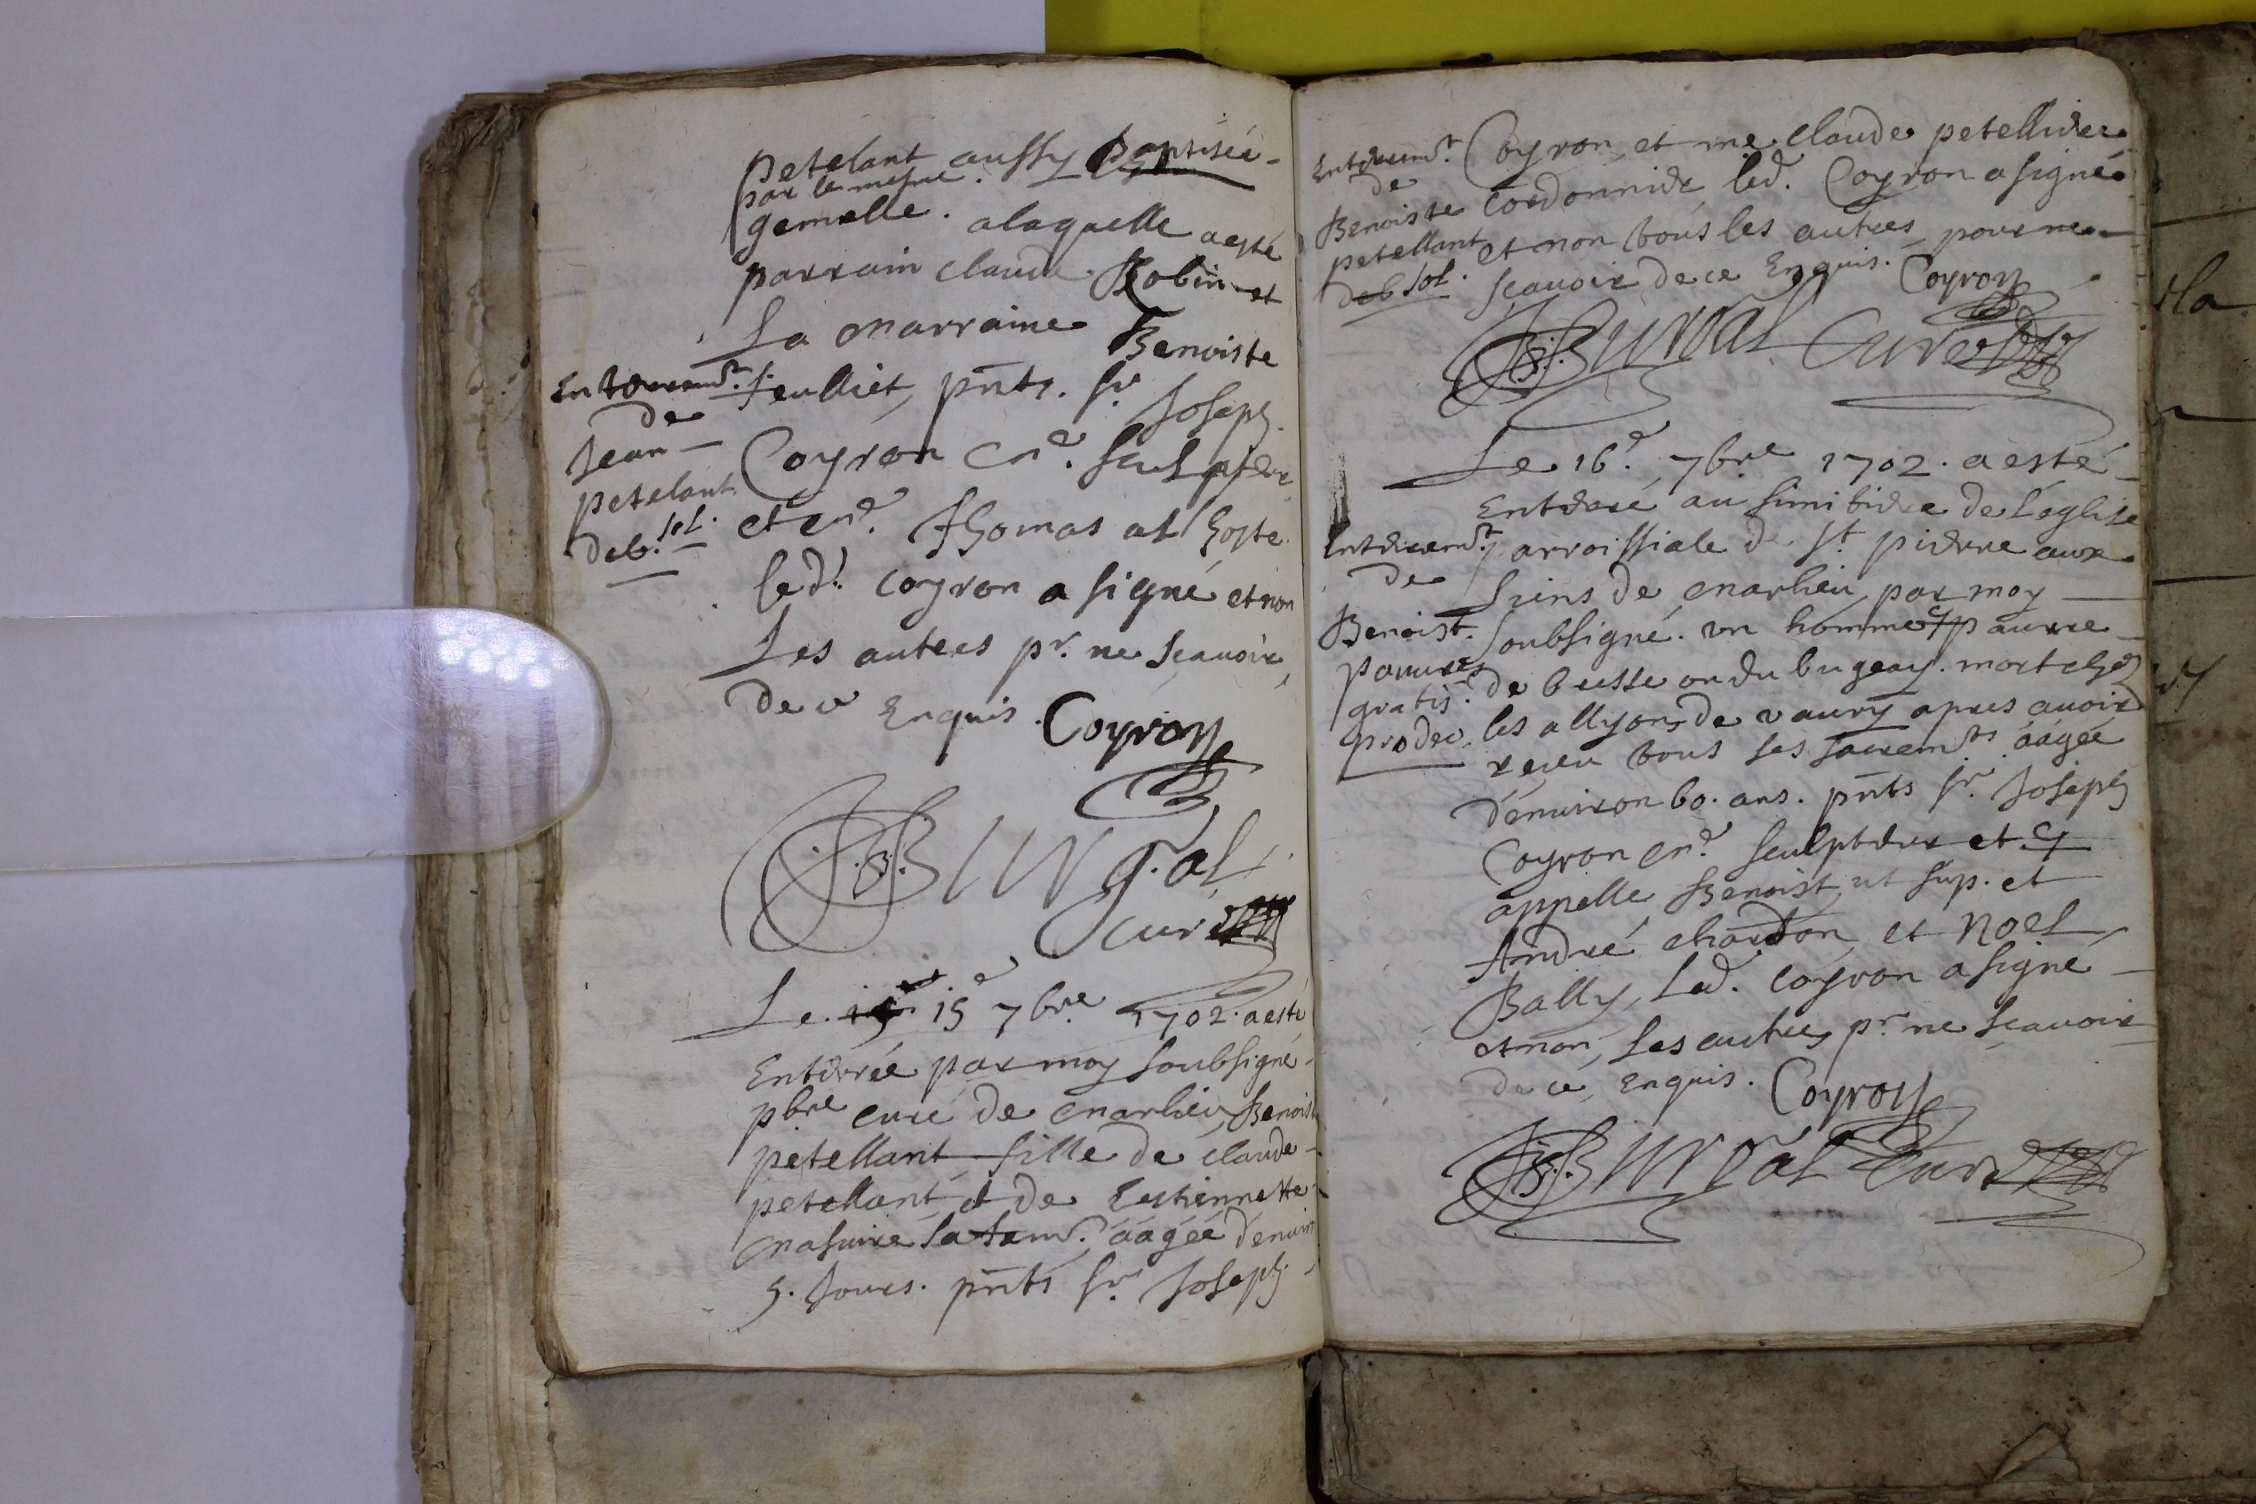 petelant aussy baptisée
par le mesme.
gemelle. a laquelle a esté
parrain claude Robin et
La marraine Benoiste
feulliet, pnts. sr Joseph
Coyron me. sculpteur
et me. Thomas al hoste
led. coyron a signé et non
Les autres pr. ne scavoir
de ce Enquis. Coyron
Burgat
curé
Enterremt.
de
Jean
petelant
deb. sol.
Le 15e 7bre 1702. a esté
Enterée par moy soubsigné
pbre curé de marlieu, Benoiste
petellant fille de claude
petellant et de Lestiennette
masuire sa fam. áagéé d'enuiron
5. Jours. pnts sr. Joseph
Enterremt.
de
Benoiste
petellant
deb sol.
Coyron, et me claude petellier
cordonnier led. Coyron a signé
et non tous les autres pour ne
scauoir de ce Enquis. Coyron
Burgat Curé
Le 16e. 7bre 1702. a esté
Enterré au simitiere de L'eglise
parroissiale de st pierre aux
liens de marlieu par moy
soubsigné. vn homme pauvre
de bresse ou du bugeay. mort ches
les allyons de vaury apres auoir
receu tous ses sacremts áagée
d'enuiron 60. ans. pnts sr. Joseph
Coyron me. sculpteur et
appelle Benoist ut sup. et
André chardon, et Noel
Bally, Led. coyron a signé
et non, Les autres pr ne scauoir
de ce, Enquis. Coyron
Burgat Curé
Enterremt.
de
Benoist.
pauure
gratis.
pro deo